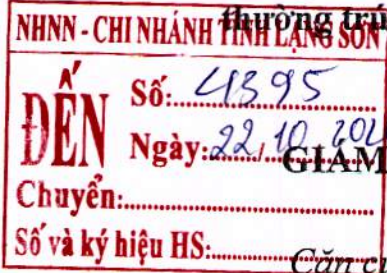 thường trú
NHNN - CHI NHÁNH TỈNH LẠNG SƠN
ĐẾN
Số: 4395
Ngày: 22/10
GIÁM
Chuyển:
Số và ký hiệu HS:
Căn c